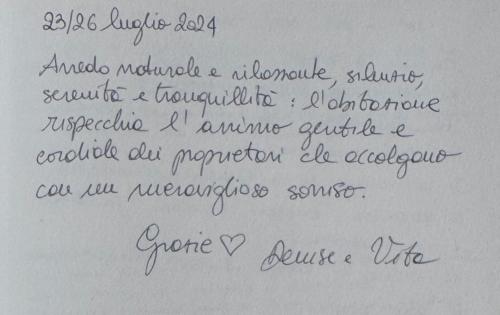 23/26 luglio 2024
Arredo naturale e rilassante, silenzio,
serenità e tranquillità: l'abitazione
rispecchia l'animo gentile e
cordiale dei proprietari che accolgono
con un meraviglioso sorriso.
Grazie ♡ Denise e Vito